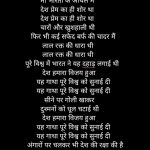 मां भारती के आंचल में
देश प्रेम का ही शोर था
देश प्रेम का ही शोर था
चारों और खुशहाली थी
फिर भी कई सफेद बर्फ की चादर में
लाल रक्त की धारा थी
लाल रक्त की धारा थी
पूरे विश्व में भारत ने यह दहाड़ लगाई थी
देश हमारा विजय हुआ
यह गाथा पूरे विश्व को सुनाई दी
यह गाथा पूरे विश्व को सुनाई दी
सीने पर गोली खाकर
दुश्मनों को धूल चटाई थी
देश हमारा विजय हुआ
यह गाथा पूरे विश्व को सुनाई दी
यह गाथा पूरे विश्व को सुनाई दी
अंगारों पर चलकर भी देश की रक्षा की है